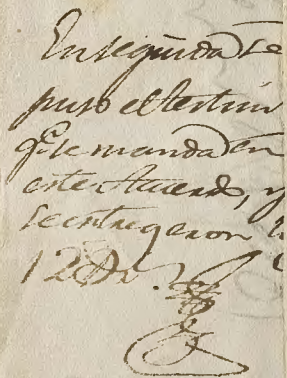 En seguida se
puso el testim
q.e se manda en
este Acuerdo, y
se entregaron
12 Ps.